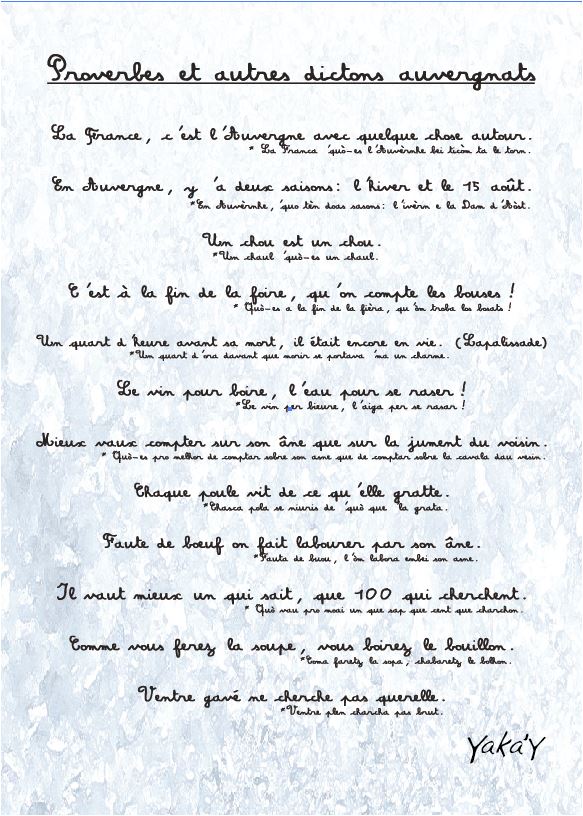 Proverbes et autres dictons auvergnats
La France, c'est l'Auvergne avec quelque chose autour.
* La Franca 'quò-es l'Auvèrnhe bei ticòm ta le torn.
En Auvergne, y 'a deux saisons: l'hiver et le 15 août.
*En Auvèrnhe, 'quo tèn doas sasons: l'ivèrn e la Dam d'Aòst.
Un chou est un chou.
*Um chaul 'quò-es un chaul.
C'est à la fin de la foire, qu'on compte les bouses !
* Quò-es a la fin de la fièra, qu'òm troba los bosats !
Un quart d'heure avant sa mort, il était encore en vie. (Lapalissade)
*Um quart d'ora davant que morir se portava 'ma un charme.
Le vin pour boire, l'eau pour se raser !
*Le vin per bieure, l'aiga per se rasar !
Mieux vaux compter sur son âne que sur la jument du voisin.
* Quò-es pro melhor de comptar sobre son asne que de comptar sobre la cavala dau vesin.
Chaque poule vit de ce qu'elle gratte.
*Chasca pola se niuris de 'quò que la grata.
Faute de bœuf on fait labourer par son âne.
*Fauta de buou, l'òm labora embei son asne.
Il vaut mieux un qui sait, que 100 qui cherchent.
* Quò vau pro mai un que sap que cent que charchon.
Comme vous ferez la soupe, vous boirez le bouillon.
*Coma faretz la sopa, chabaretz le bolhon.
Ventre gavé ne cherche pas querelle.
*Ventre plen charcha pas brut.
Yaka'Y